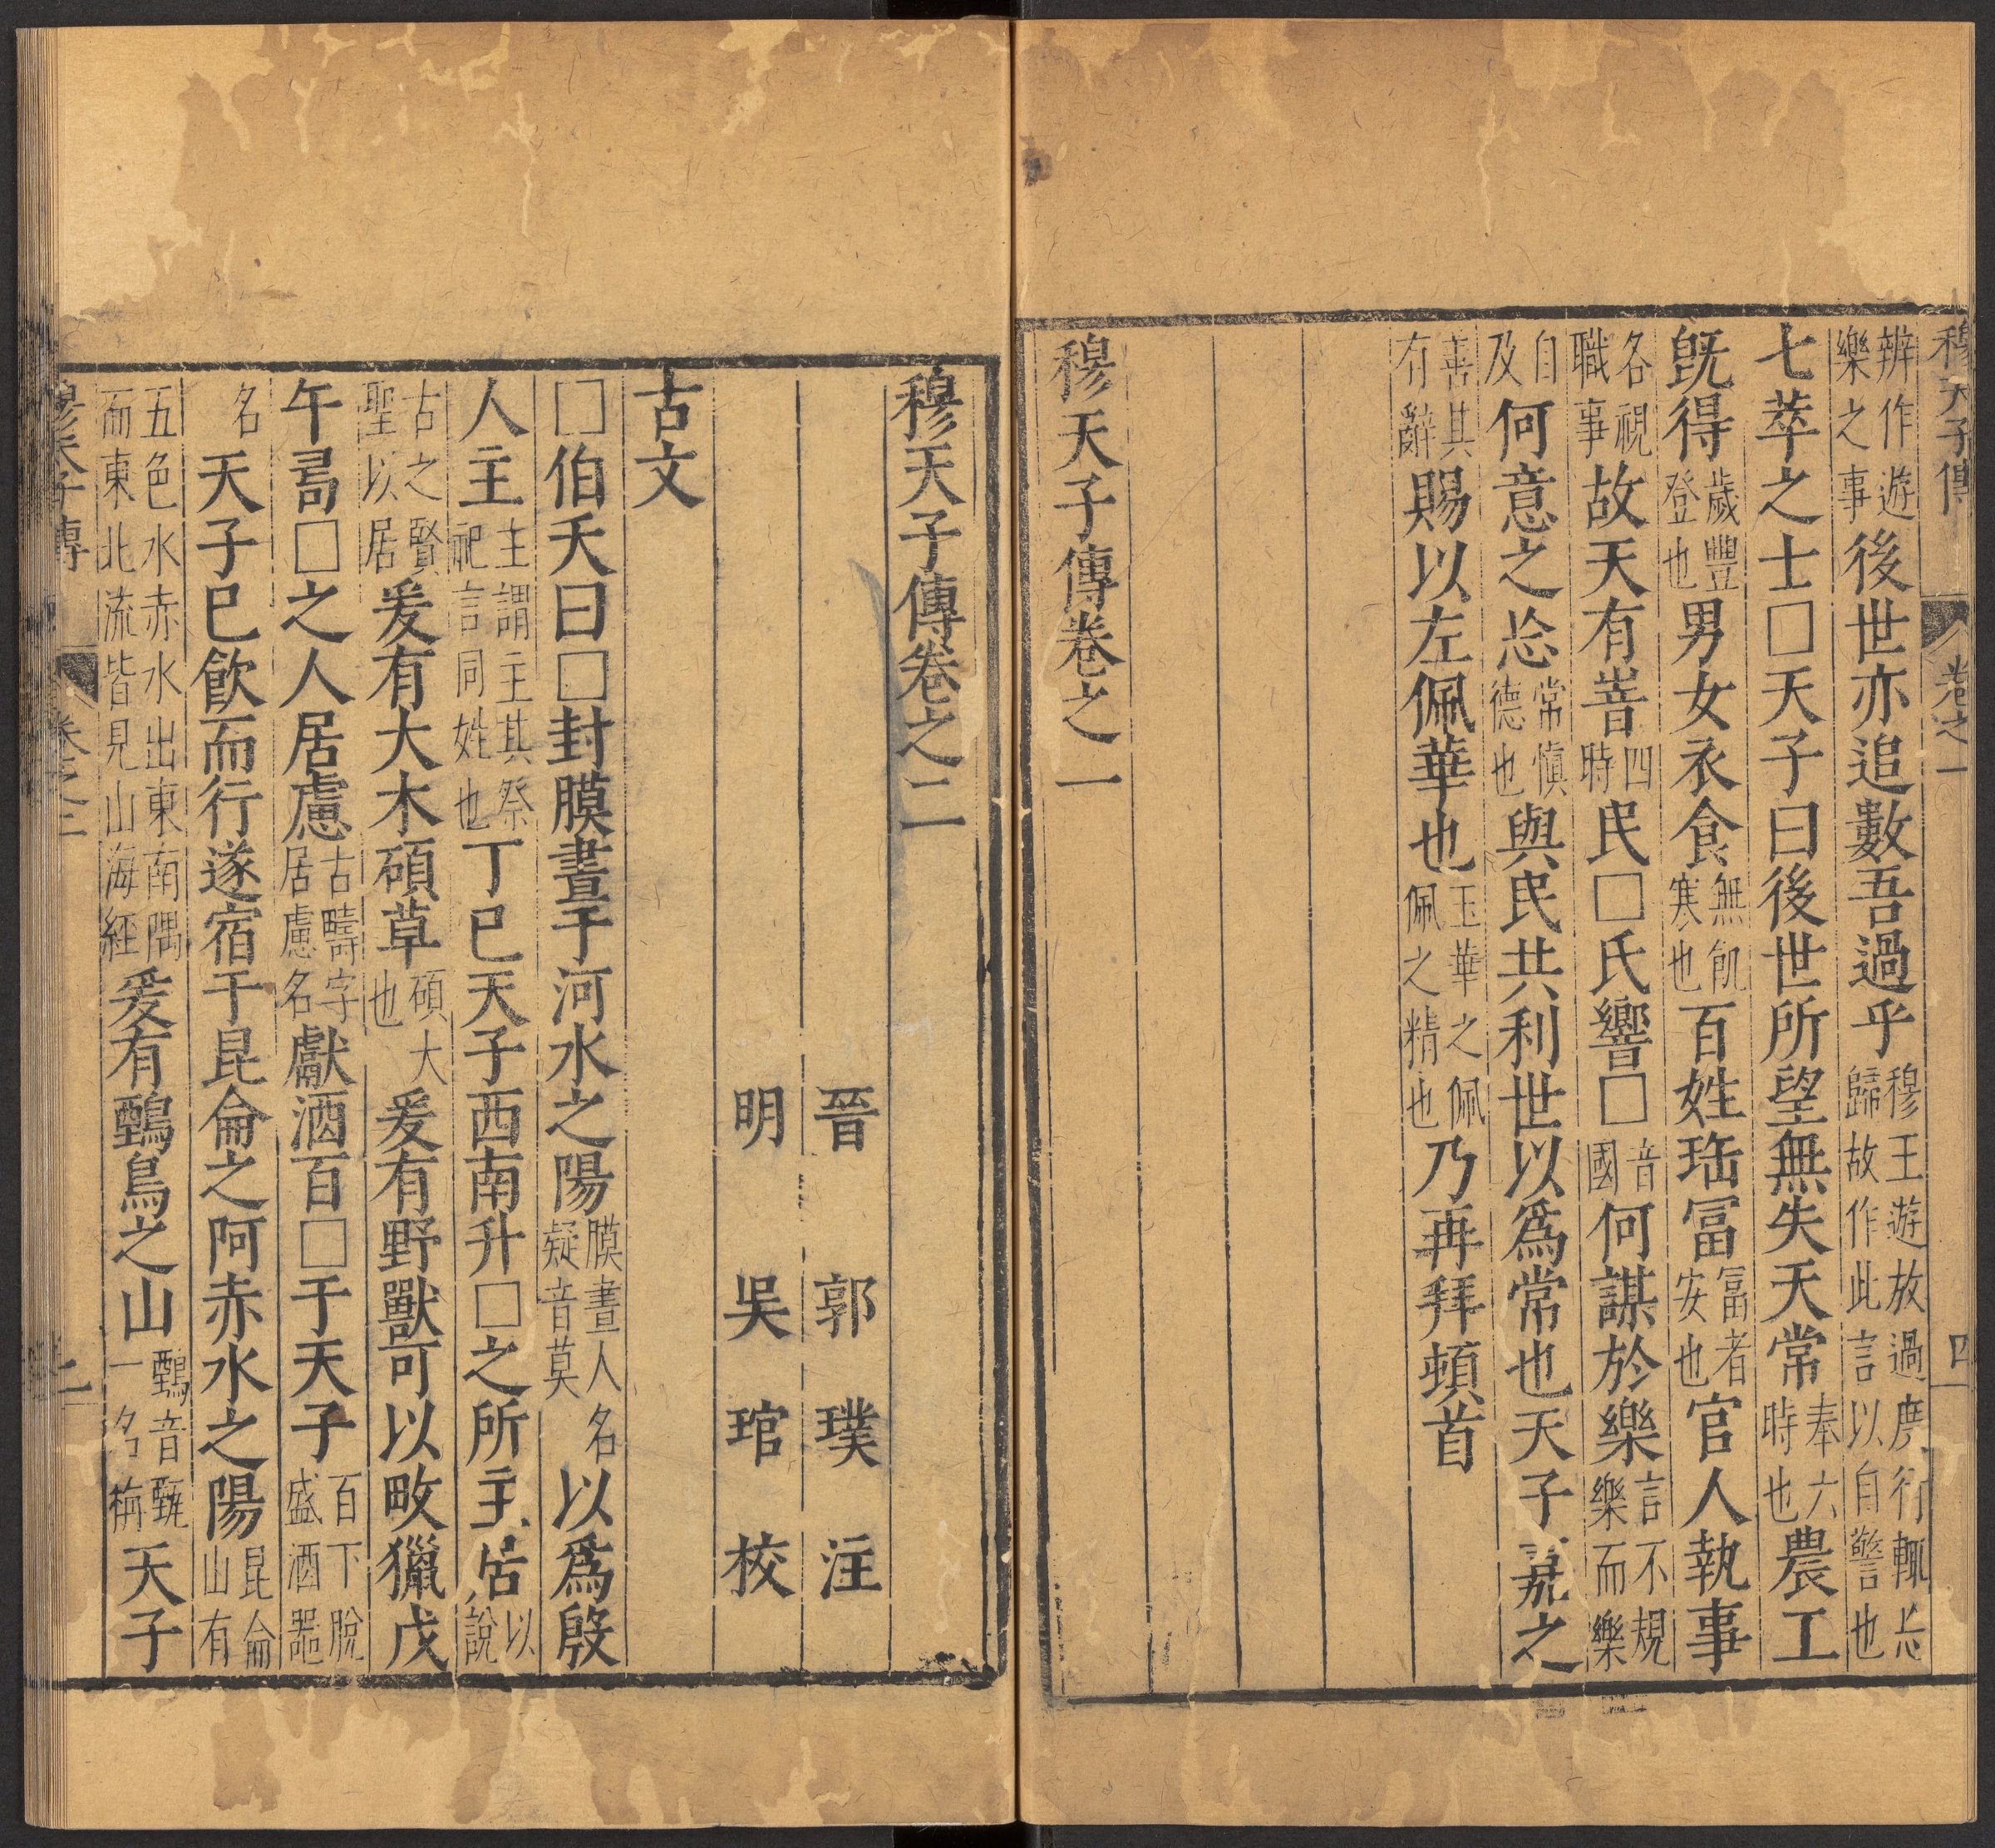 穆天子傳 卷之一 四
辨作遊樂之事後世亦追數吾過乎穆王遊放過度行輒忘歸故作此言以自警也
七萃之士□天子曰後世所望無失天常奉六時也農工
既得歲豐登也男女衣食無飢寒也百姓珤冨冨者安也官人執事
各視職事故天有峕四時民□氏響□音國何謀於樂言不規樂而樂
自及何意之忩常慎德也與民共利世以為常也天子嘉之
善其有辭賜以左佩華也玉華之佩佩之精也乃再拜頓首
穆天子傳卷之一
穆天子傳卷之二
晉 郭 璞 注
明 吳 琯 校
古文
□伯夭曰□封膜晝于河水之陽膜晝人名疑音莫以為殷
人主主謂主其祭祀言同姓也丁巳天子西南升□之所主居以說
古之賢聖以居爰有大木碩草碩大也爰有野獸可以畋獵戊
午𠷎□之人居慮古疇字居慮名獻酒百□于天子百下脫盛酒器
名天子已飲而行遂宿于昆侖之阿赤水之陽昆侖山有
五色水赤水出東南隅而東北流皆見山海經爰有鶤鳥之山鶤音甄一名㮄天子
穆天子傳 卷之二